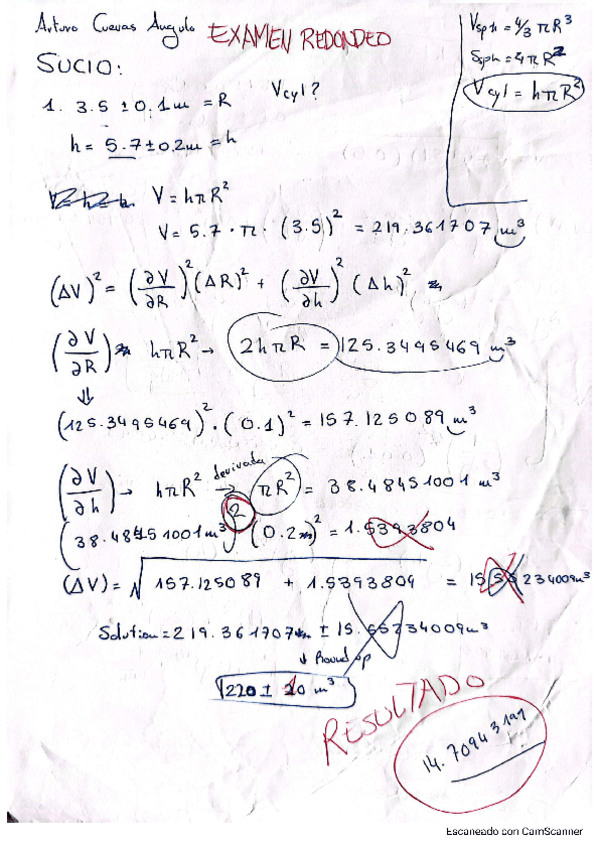 Arturo Cuevas Angulo EXAMEN REDONDEO
Vsph = 4/3 πR³
Ssph = 4πR²
Vcyl = hπR²
SUCIO:
1. 3.5 ± 0.1m = R Vcyl?
h = 5.7 ± 0.2m = h
V = hπR²
V = 5.7 · π · (3.5)² = 219.361707 m³
(ΔV)² = (∂V/∂R)² (ΔR)² + (∂V/∂h)² (Δh)²
(∂V/∂R) hπR² → 2hπR = 125.3495469 m³
⇓
(125.3495469)² · (0.1)² = 157.125089 m³
(∂V/∂h) → hπR² derivada → πR² = 38.48451001 m³
2
(38.48451001m³) (0.2m)² = 1.5393804
(ΔV) = √157.125089 + 1.5393804 = 234009m³
Solution = 219.361707 ± 15. 234009m³
↓ Round up
220 ± m³
RESULTADO
14.70943191
Escaneado con CamScanner